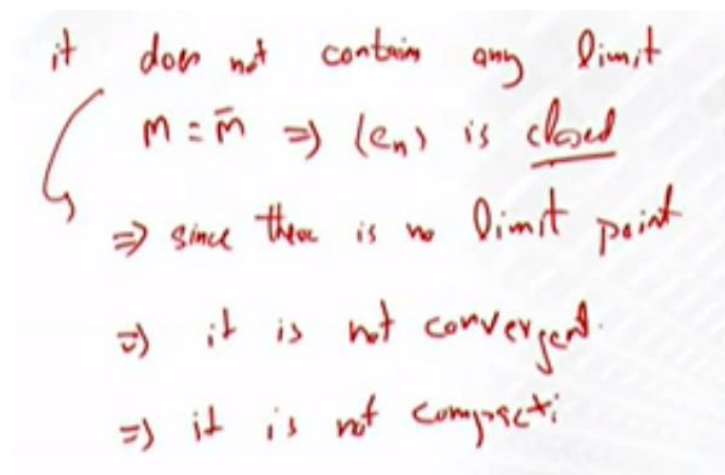 it does not contain any limit
M = M̄ ⇒ (en) is closed
⇒ since there is no limit point
⇒ it is not convergent.
⇒ it is not compact.